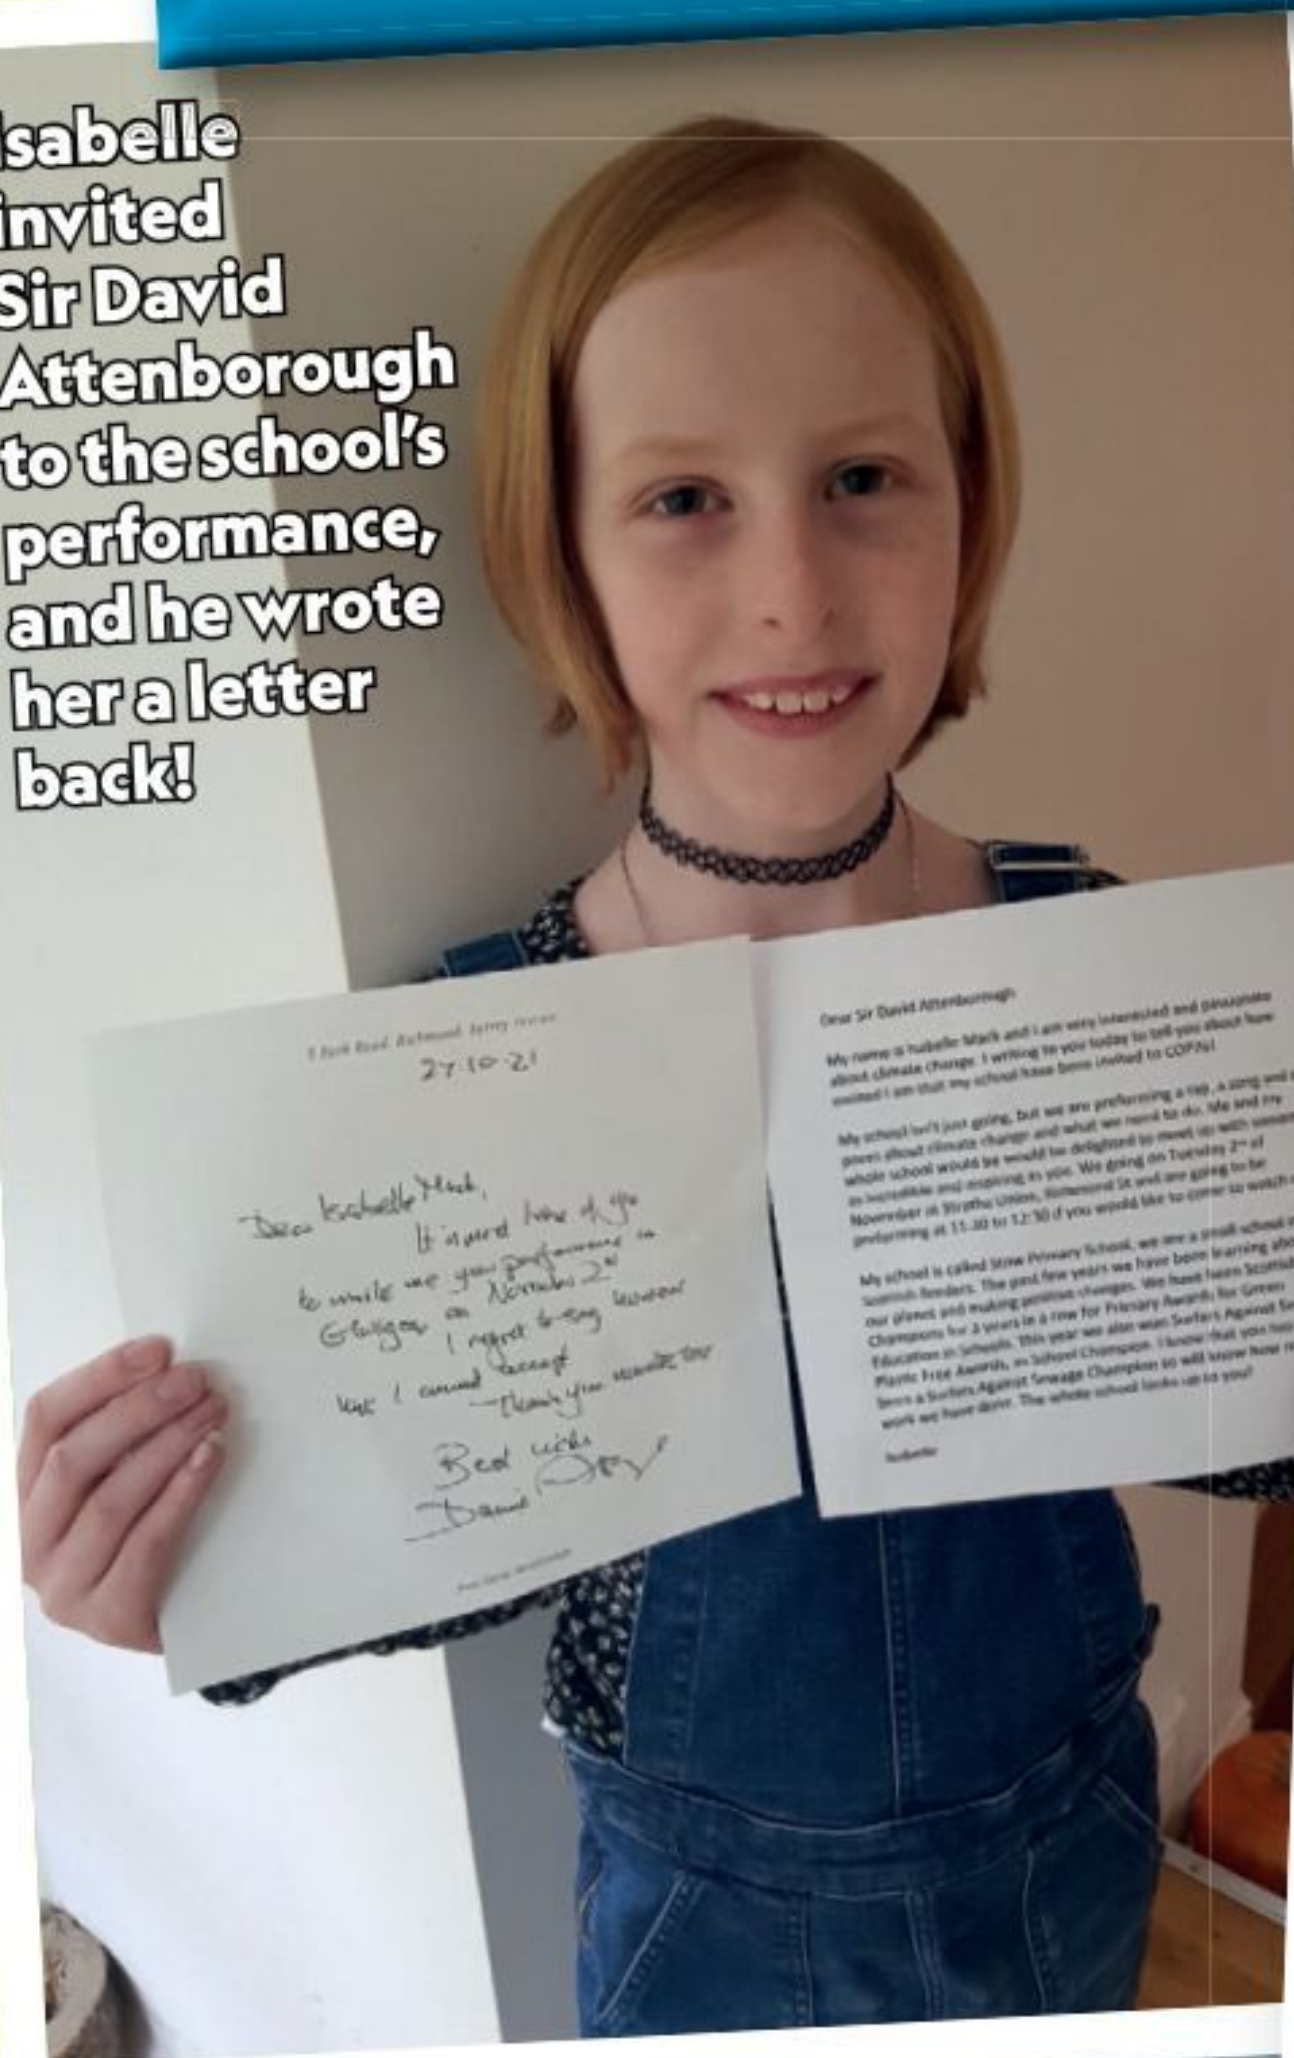 Isabelle
invited
Sir David
Attenborough
to the school's
performance,
and he wrote
her a letter
back!
5 Park Road, Richmond, Surrey
27.10.21
Dear Isabelle Mack,
It is most kind of you
to invite me your performance in
Glasgow on November 2nd
I regret
but I cannot accept
– thank you
Best wishes
David
Dear Sir David Attenborough
My name is Isabelle Mack and I am very interested and passionate
about climate change. I writing to you today to tell you about how
excited I am that my school have been invited to COP26!
My school isn't just going, but we are preforming a rap, a song and a
poem about climate change and what we need to do. Me and my
whole school would be would be delighted to meet up with someone
as incredible and inspiring as you. We going on Tuesday 2nd of
November at Strathe Union, Richmond St and are going to be
preforming at 11.30 to 12:30 if you would like to come to watch
My school is called Stow Primary School, we are a small school in
Scottish Borders. The past few years we have been learning about
our planet and making positive changes. We have been Scottish
Champions for 3 years in a row for Primary Awards for Green
Education in Schools. This year we also won Surfers Against
Plastic Free Awards, as School Champion. I know that you too
been a Surfers Against Sewage Champion so will know how
work we have done. The whole school looks up to you!
Isabelle